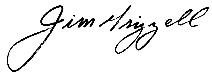 Jim Grizzell